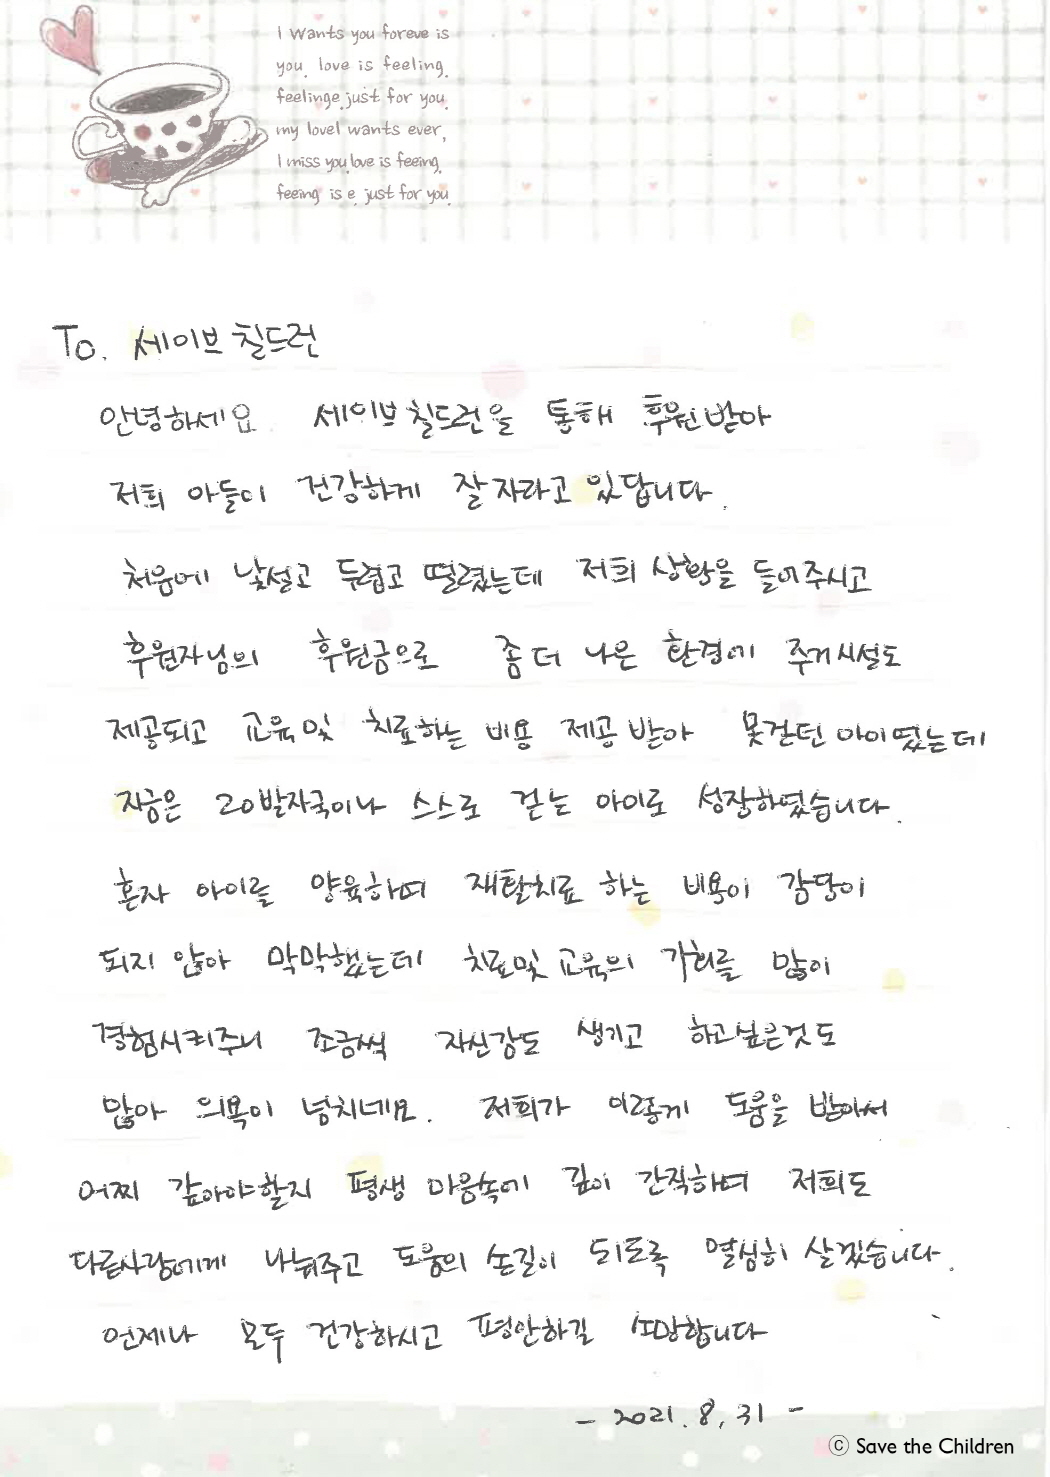 I wants you foreve is
you. love is feeling.
feelinge.just for you.
my lovel wants ever,
I miss you,love is feeing.
feeing is e. just for you.
To. 세이브칠드런
안녕하세요. 세이브칠드런을 통해 후원받아
저희 아들이 건강하게 잘자라고 있답니다.
처음에 낯설고 두렵고 떨렸는데 저희 상황을 들어주시고
후원자님의 후원금으로 좀더 나은 환경에 주거시설도
제공되고 교육및 치료하는 비용 제공받아 못걷던 아이였는데
지금은 20발자국이나 스스로 걷는 아이로 성장하였습니다.
혼자 아이를 양육하며 재활치료 하는 비용이 감당이
되지 않아 막막했는데 치료및 교육의 기회를 많이
경험시켜주니 조금씩 자신감도 생기고 하고싶은것도
많아 의욕이 넘치네요. 저희가 이렇게 도움을 받아서
어찌 갚아야할지 평생 마음속에 깊이 간직하며 저희도
다른사람에게 나눠주고 도움의 손길이 되도록 열심히 살겠습니다.
언제나 모두 건강하시고 평안하길 소망합니다
- 2021. 8. 31 -
© Save the Children